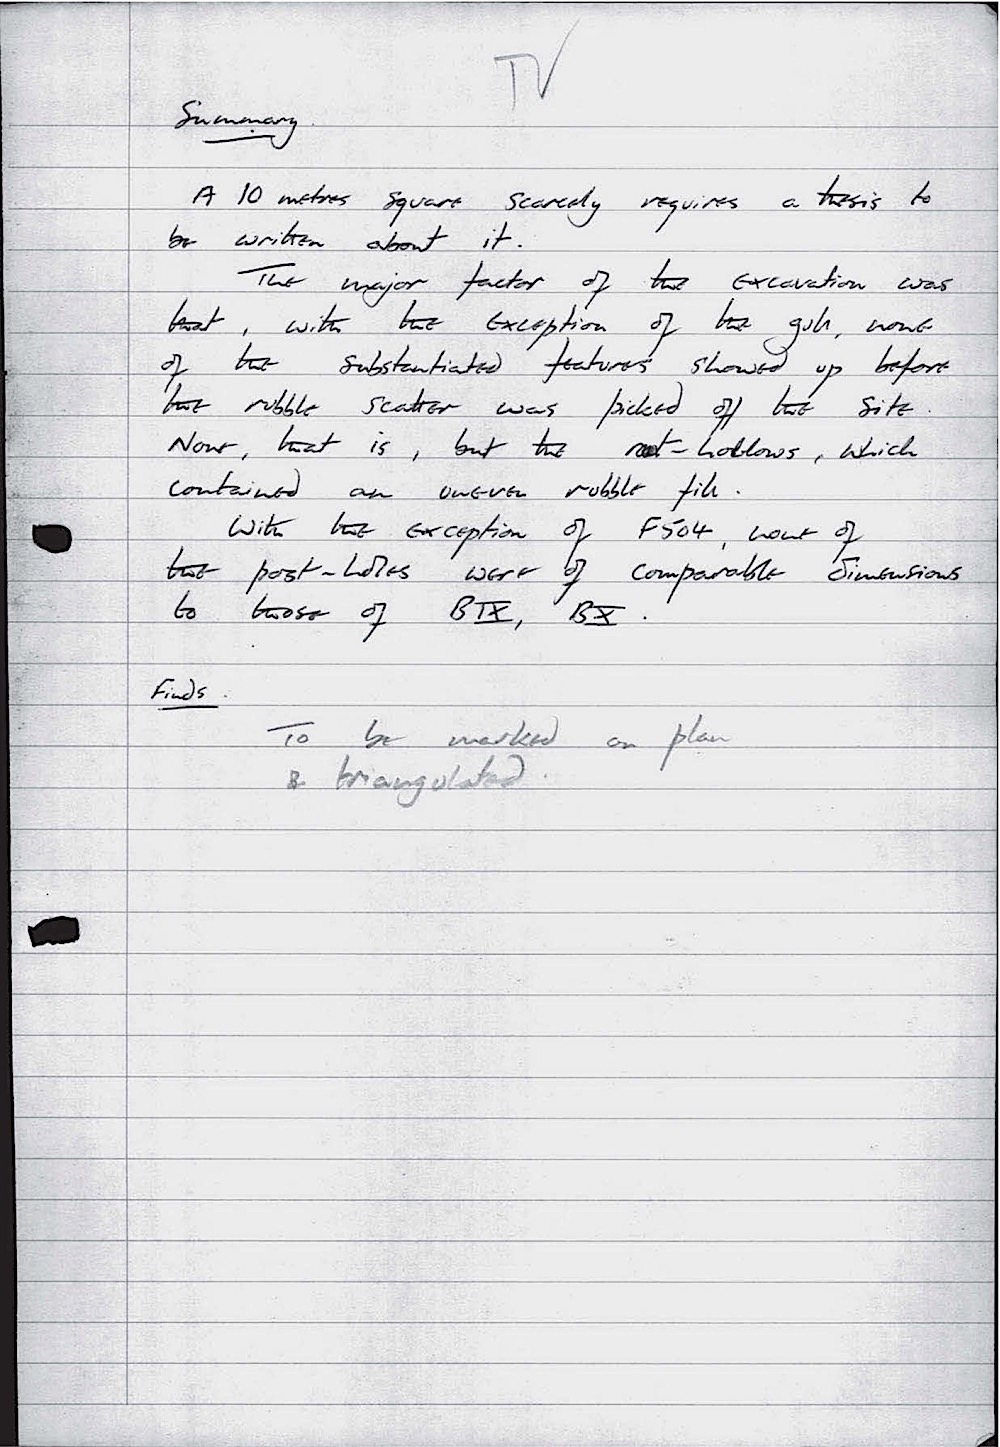 TV
Summary.
A 10 metres square scarcely requires a thesis to
be written about it.
The major factor of the excavation was
that, with the exception of the gully, none
of the substantiated features showed up before
the rubble scatter was picked off the site.
None, that is, but the root-hollows, which
contained an uneven rubble fill.
With the exception of F504, none of
the post-holes were of comparable dimensions
to those of BIX, BX.
Finds.
To be marked on plan
& triangulated.